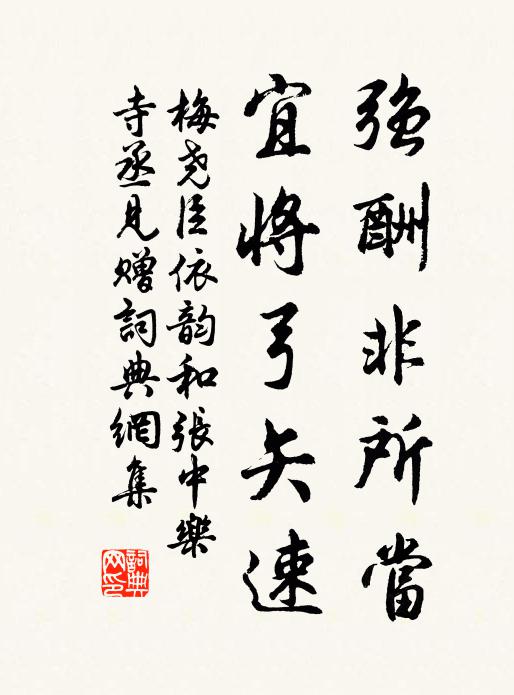 強酬非所當
宜將弓矢速
梅堯臣依韵和張中樂
寺丞見贈詞典網集
詞典
网印